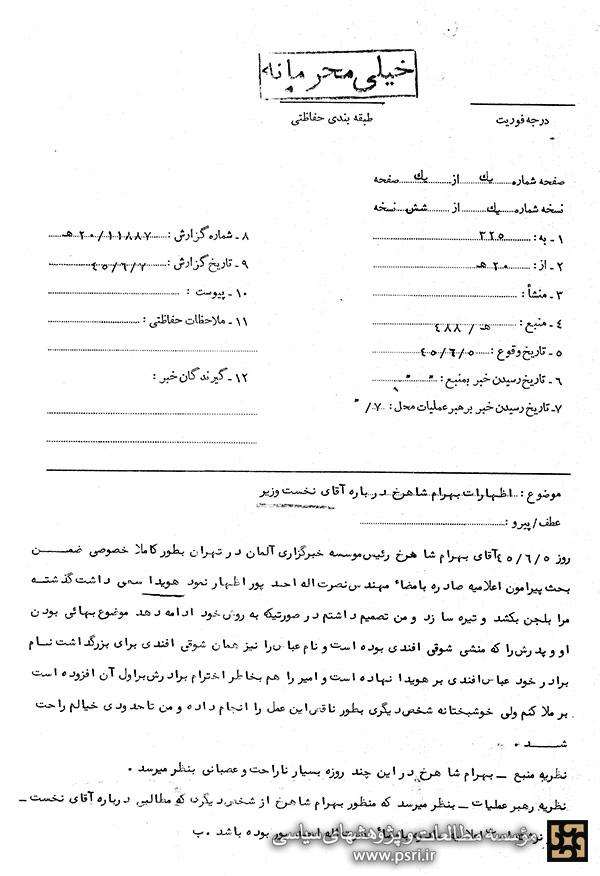 خیلی محرمانه
طبقه بندی حفاظتی
درجه فوریت
صفحه شماره یك از یك صفحه
نسخه شماره یك از شش نسخه
۱ـ به : ۳۲۵
۲ـ از : ۲۰ هـ
۳ـ منشأ :
۴ـ منبع : هـ / ۴۸۸
۵ـ تاریخ وقوع : ۴۵/۶/۵
۶ـ تاریخ رسیدن خبر بمنبع : " "
۷ـ تاریخ رسیدن خبر برهبر عملیات محل : ۷/ "
۸ـ شماره گزارش : ۲۰/۱۱۸۸۷ هـ
۹ـ تاریخ گزارش : ۴۵/۶/۷
۱۰ـ پیوست :
۱۱ـ ملاحظات حفاظتی :
۱۲ـ گیرندگان خبر :
موضوع : اظهارات بهرام شاهرخ درباره آقای نخست وزیر
عطف/پیرو :
روز ۴۵/۶/۵ آقای بهرام شاهرخ رئیس موسسه خبرگزاری آلمان در تهران بطور کاملا خصوصی ضمن
بحث پیرامون اعلامیه صادره بامضاء مهندس نصرت اله احد پور اظهار نمود هویدا سعی داشت گذشته
مرا بلجن بکشد و تیره سازد و من تصمیم داشتم در صورتیکه به روش خود ادامه دهد موضوع بهائی بودن
او و پدرش را که منشی شوقی افندی بوده است و نام عباس را نیز همان شوقی افندی برای بزرگداشت نام
برادر خود عباس افندی بر هویدا نهاده است و امیر را هم بخاطر احترام برادرش براول آن افزوده است
بر ملا کنم ولی خوشبختانه شخص دیگری بطور ناقص این عمل را انجام داده و من تا حدودی خیالم راحت
شد .
نظریه منبع ـ بهرام شاهرخ در این چند روزه بسیار ناراحت و عصبانی بنظر میرسد .
نظریه رهبر عملیات ـ بنظر میرسد که منظور بهرام شاهرخ از شخص دیگری که مطالبی درباره آقای نخست ـ
بوده باشد . ب
مؤسسه مطالعات و پژوهشهای سیاسی
www.psri.ir